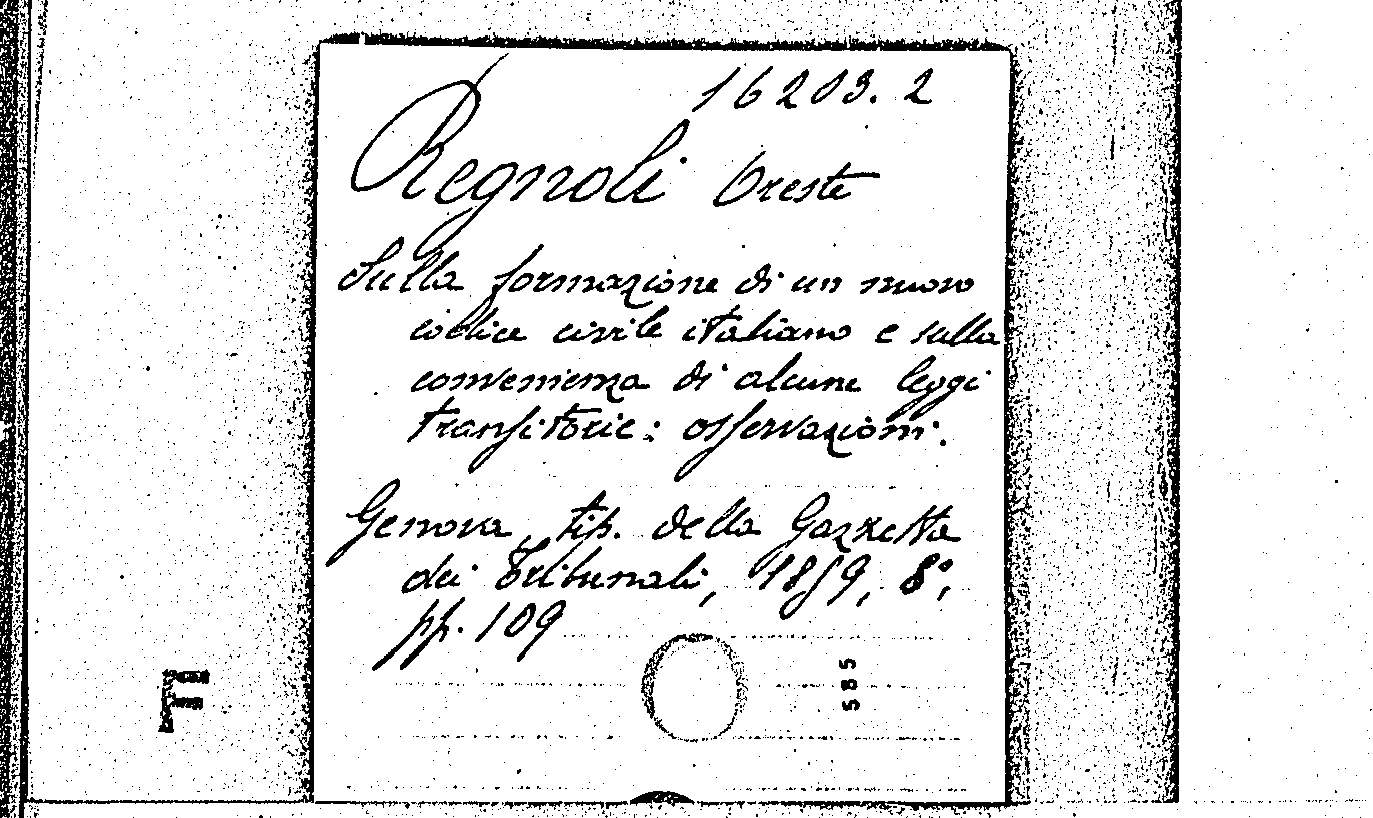 16203.2
Regnoli Oreste
Sulla formazione di un nuovo
codice civile italiano e sulla
convenienza di alcune leggi
transitorie: osservazioni.
Genova, tip. della Gazzetta
dei Tribunali, 1859, 8°,
pp. 109
585
F